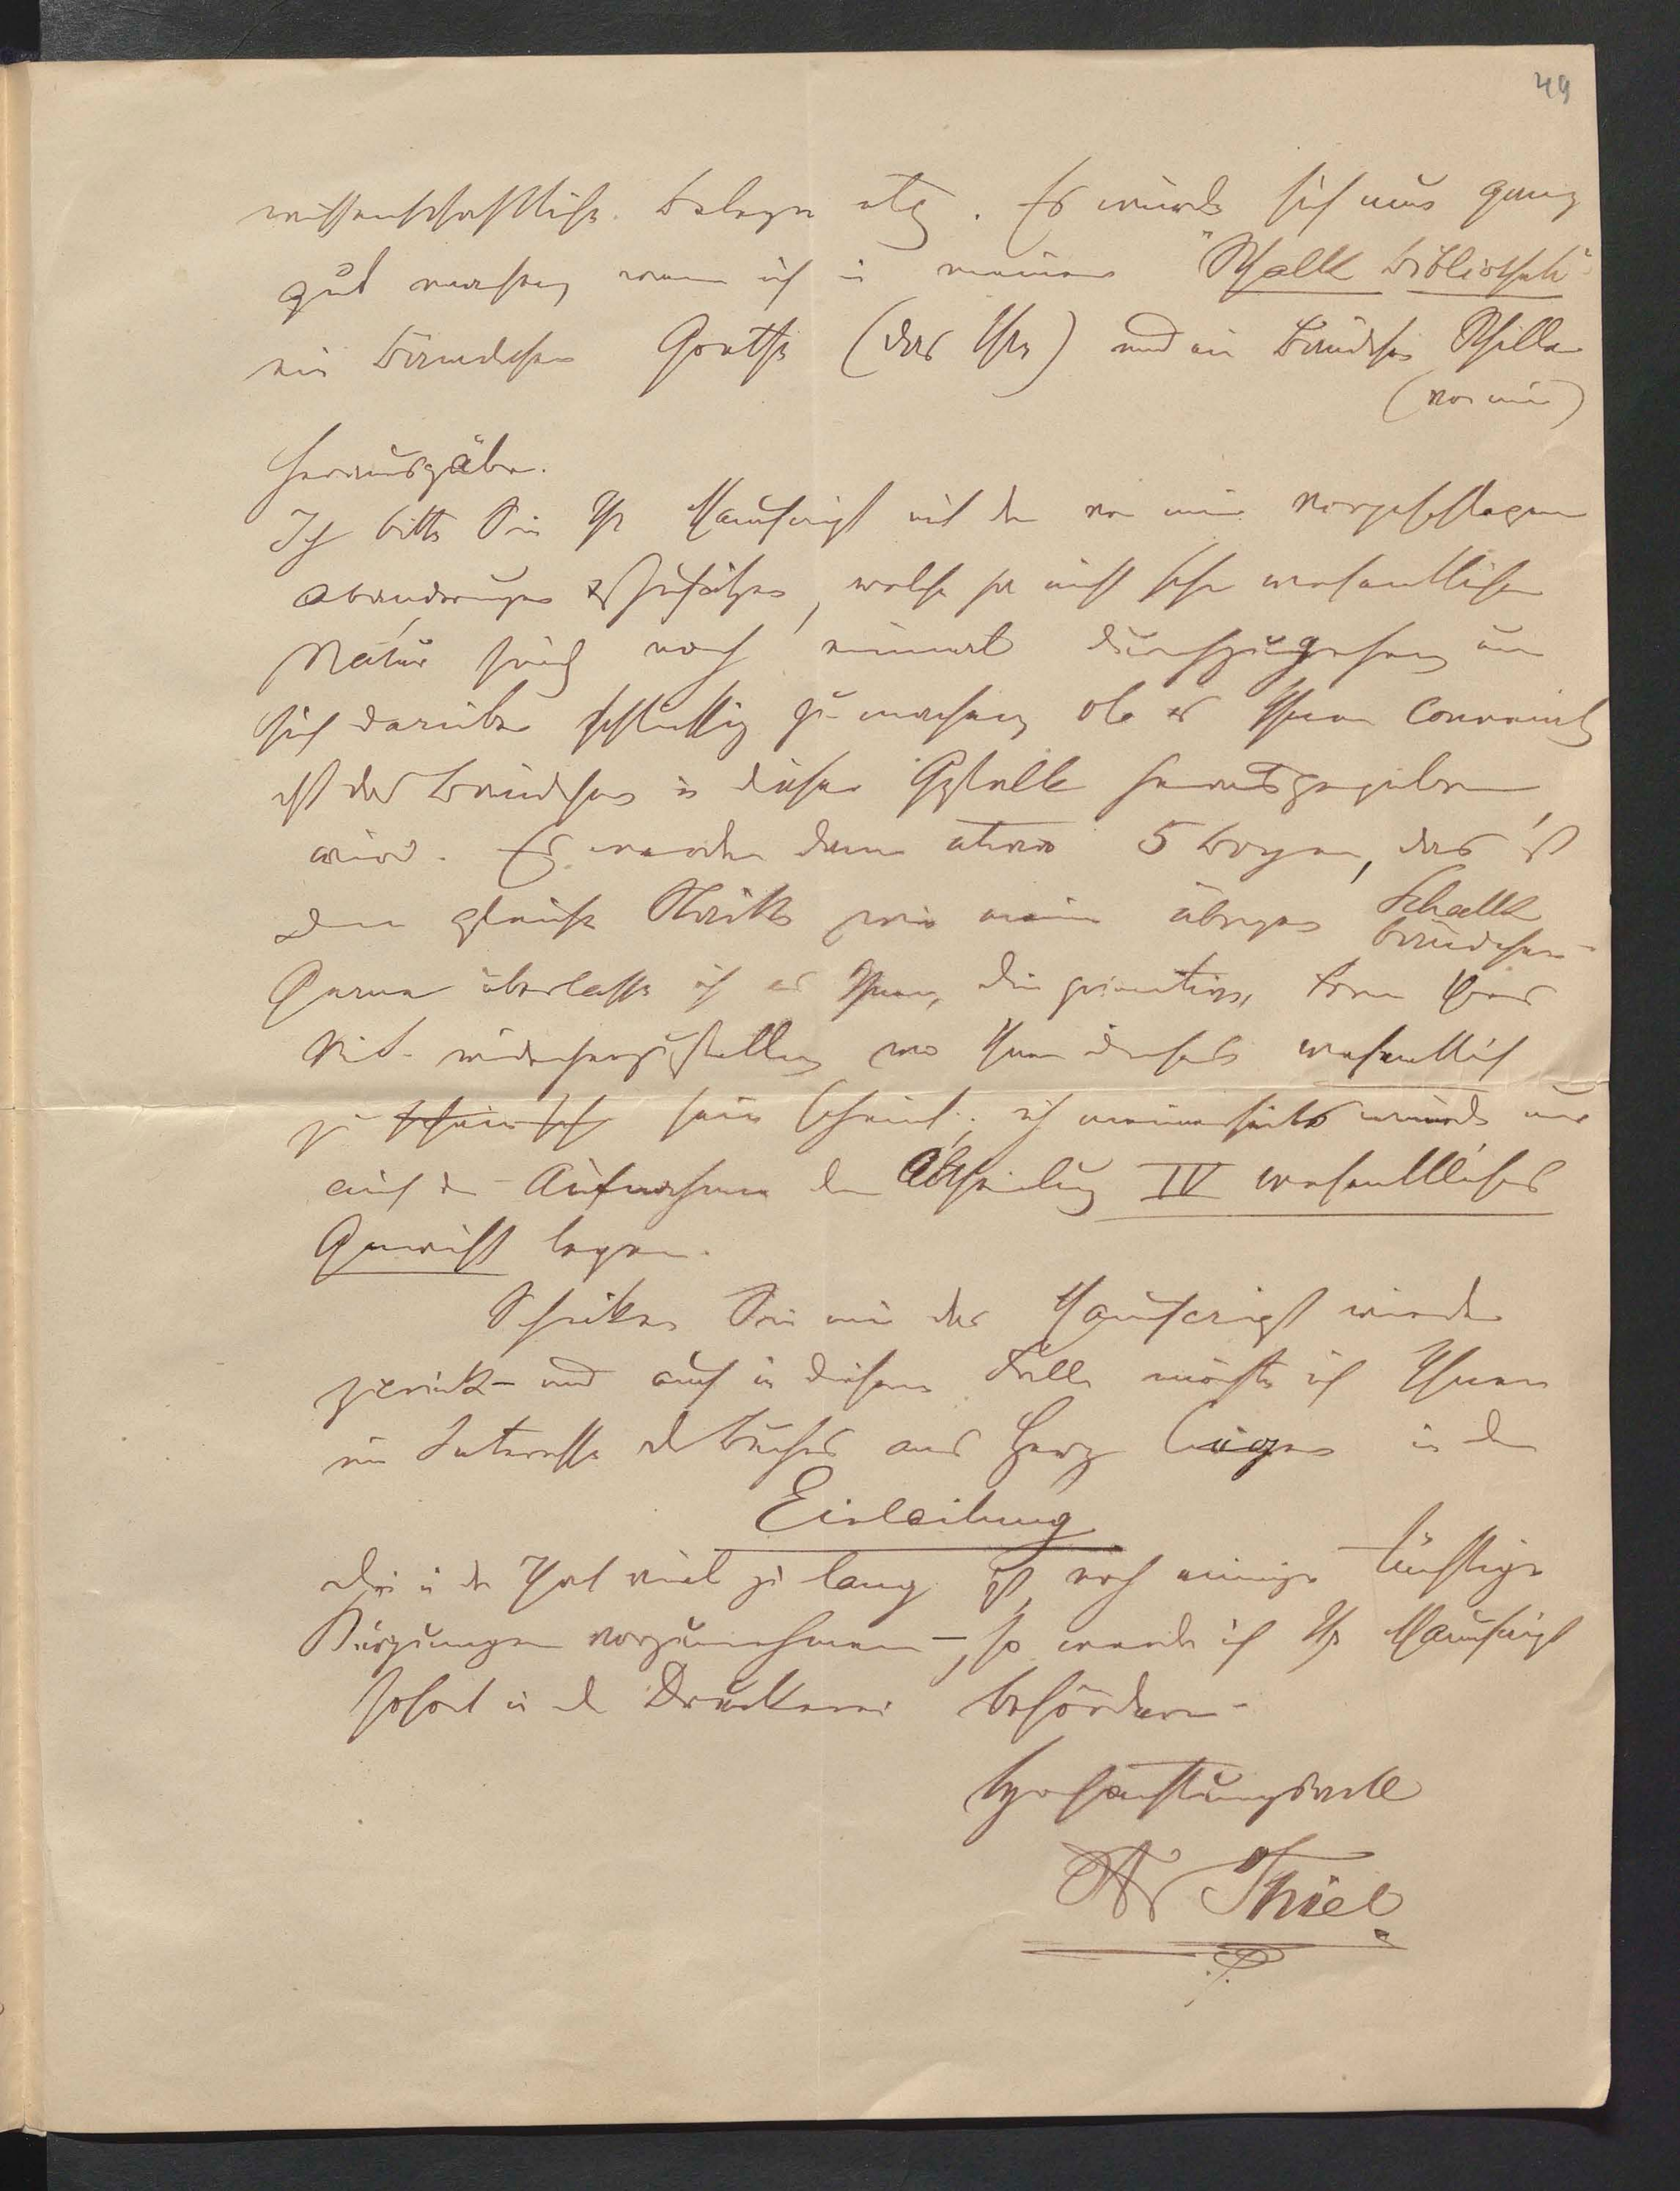 49
wissenschaftliche Belege etc. Es würde sich nun ganz
gut machen wenn ich in meiner "Schalk Bibliothek"
ein Bändchen Goethe (das Ihre) und ein Bändchen Schiller
(von mir)
herausgäbe.
Ich bitte Sie Ihr Manuscript mit den von mir vorgeschlagenen
Abänderungen & Zusätzen, welche ja nicht sehr wesentlicher
Natur sind noch einmal durchzugehen um
sich darüber schlüssig zu machen ob es Ihnen convenirt
daß das Bändchen in dieser Gestalt herausgegeben
wird. Es werden dann etwa 5 Bogen, das ist
die gleiche Stärke wie meine übrigen Schalk
bändchen -
Gerne überlasse ich es Ihnen, die
wiederherzustellen wo Ihnen dieselbe wesentlich
zu sein scheint; ich meinerseits würde nur
auf die Aufnahme der Abtheilung IV wesentliches
Gewicht legen.
Schicken Sie mir das Manuscript wieder
zurück - und auch in diesem Falle möchte ich Ihnen
im Interesse des Buches ans Herz legen in der
Einleitung
die in der That viel zu lang ist, noch einige tüchtige
Kürzungen vorzunehmen -, so werde ich Ihr Manuscript
sofort in die Druckerei befördern -
hochachtungsvoll
Thiel